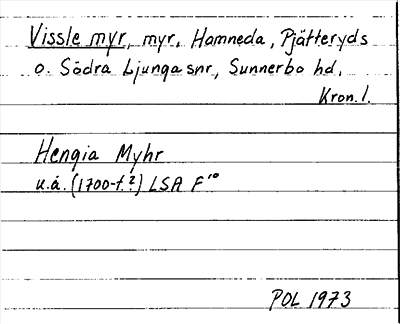 Vissle myr, myr, Hamneda, Pjätteryds
o. Södra Ljunga snr, Sunnerbo hd,
Kron. l.
Hengia Myhr
u.å. (1700-t.?) LSA F¹⁰
POL 1973